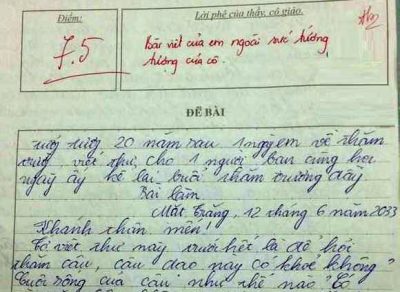 Điểm:
7.5
Lời phê của thầy, cô giáo.
Bài viết của em ngoài sức tưởng
tượng của cô.
ĐỀ BÀI
tưởng tượng 20 năm sau 1 ngày em về thăm
trường viết thư cho 1 người bạn cùng học
ngày ấy kể lại buổi thăm trường đấy
Bài làm
Mặt Trăng, 12 tháng 6 năm 2033
Khánh thân mến!
Tớ viết thư này trước hết là để hỏi
thăm cậu, cậu dạo này có khoẻ không?
Cuộc sống của cậu như thế nào? Tớ